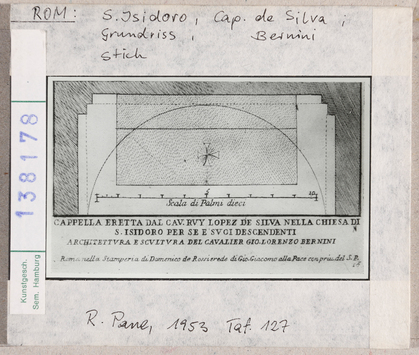 ROM: S. Isidoro, Cap. de Silva;
Grundriss, Bernini
Stich
138178
Kunstgesch.
Sem. Hamburg
5
10
Scala di Palmi dieci
CAPPELLA ERETTA DAL CAV. RVY LOPEZ DE SILVA NELLA CHIESA DI
S. ISIDORO PER SE E SVOI DESCENDENTI
ARCHITETTVRA E SCVLTVRA DEL CAVALIER GIO. LORENZO BERNINI
Roma nella Stamperia di Domenico de Rossi erede di Gio. Giacomo alla Pace con priu. del S. P.
R. Pane, 1953 Taf. 127